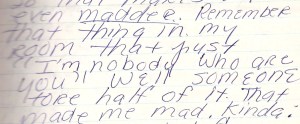 so that makes
even madder. Remember
that thing in my
room that just
"I'm nobody who are
you" Well someone
tore half of it. That
made me mad. Kinda.